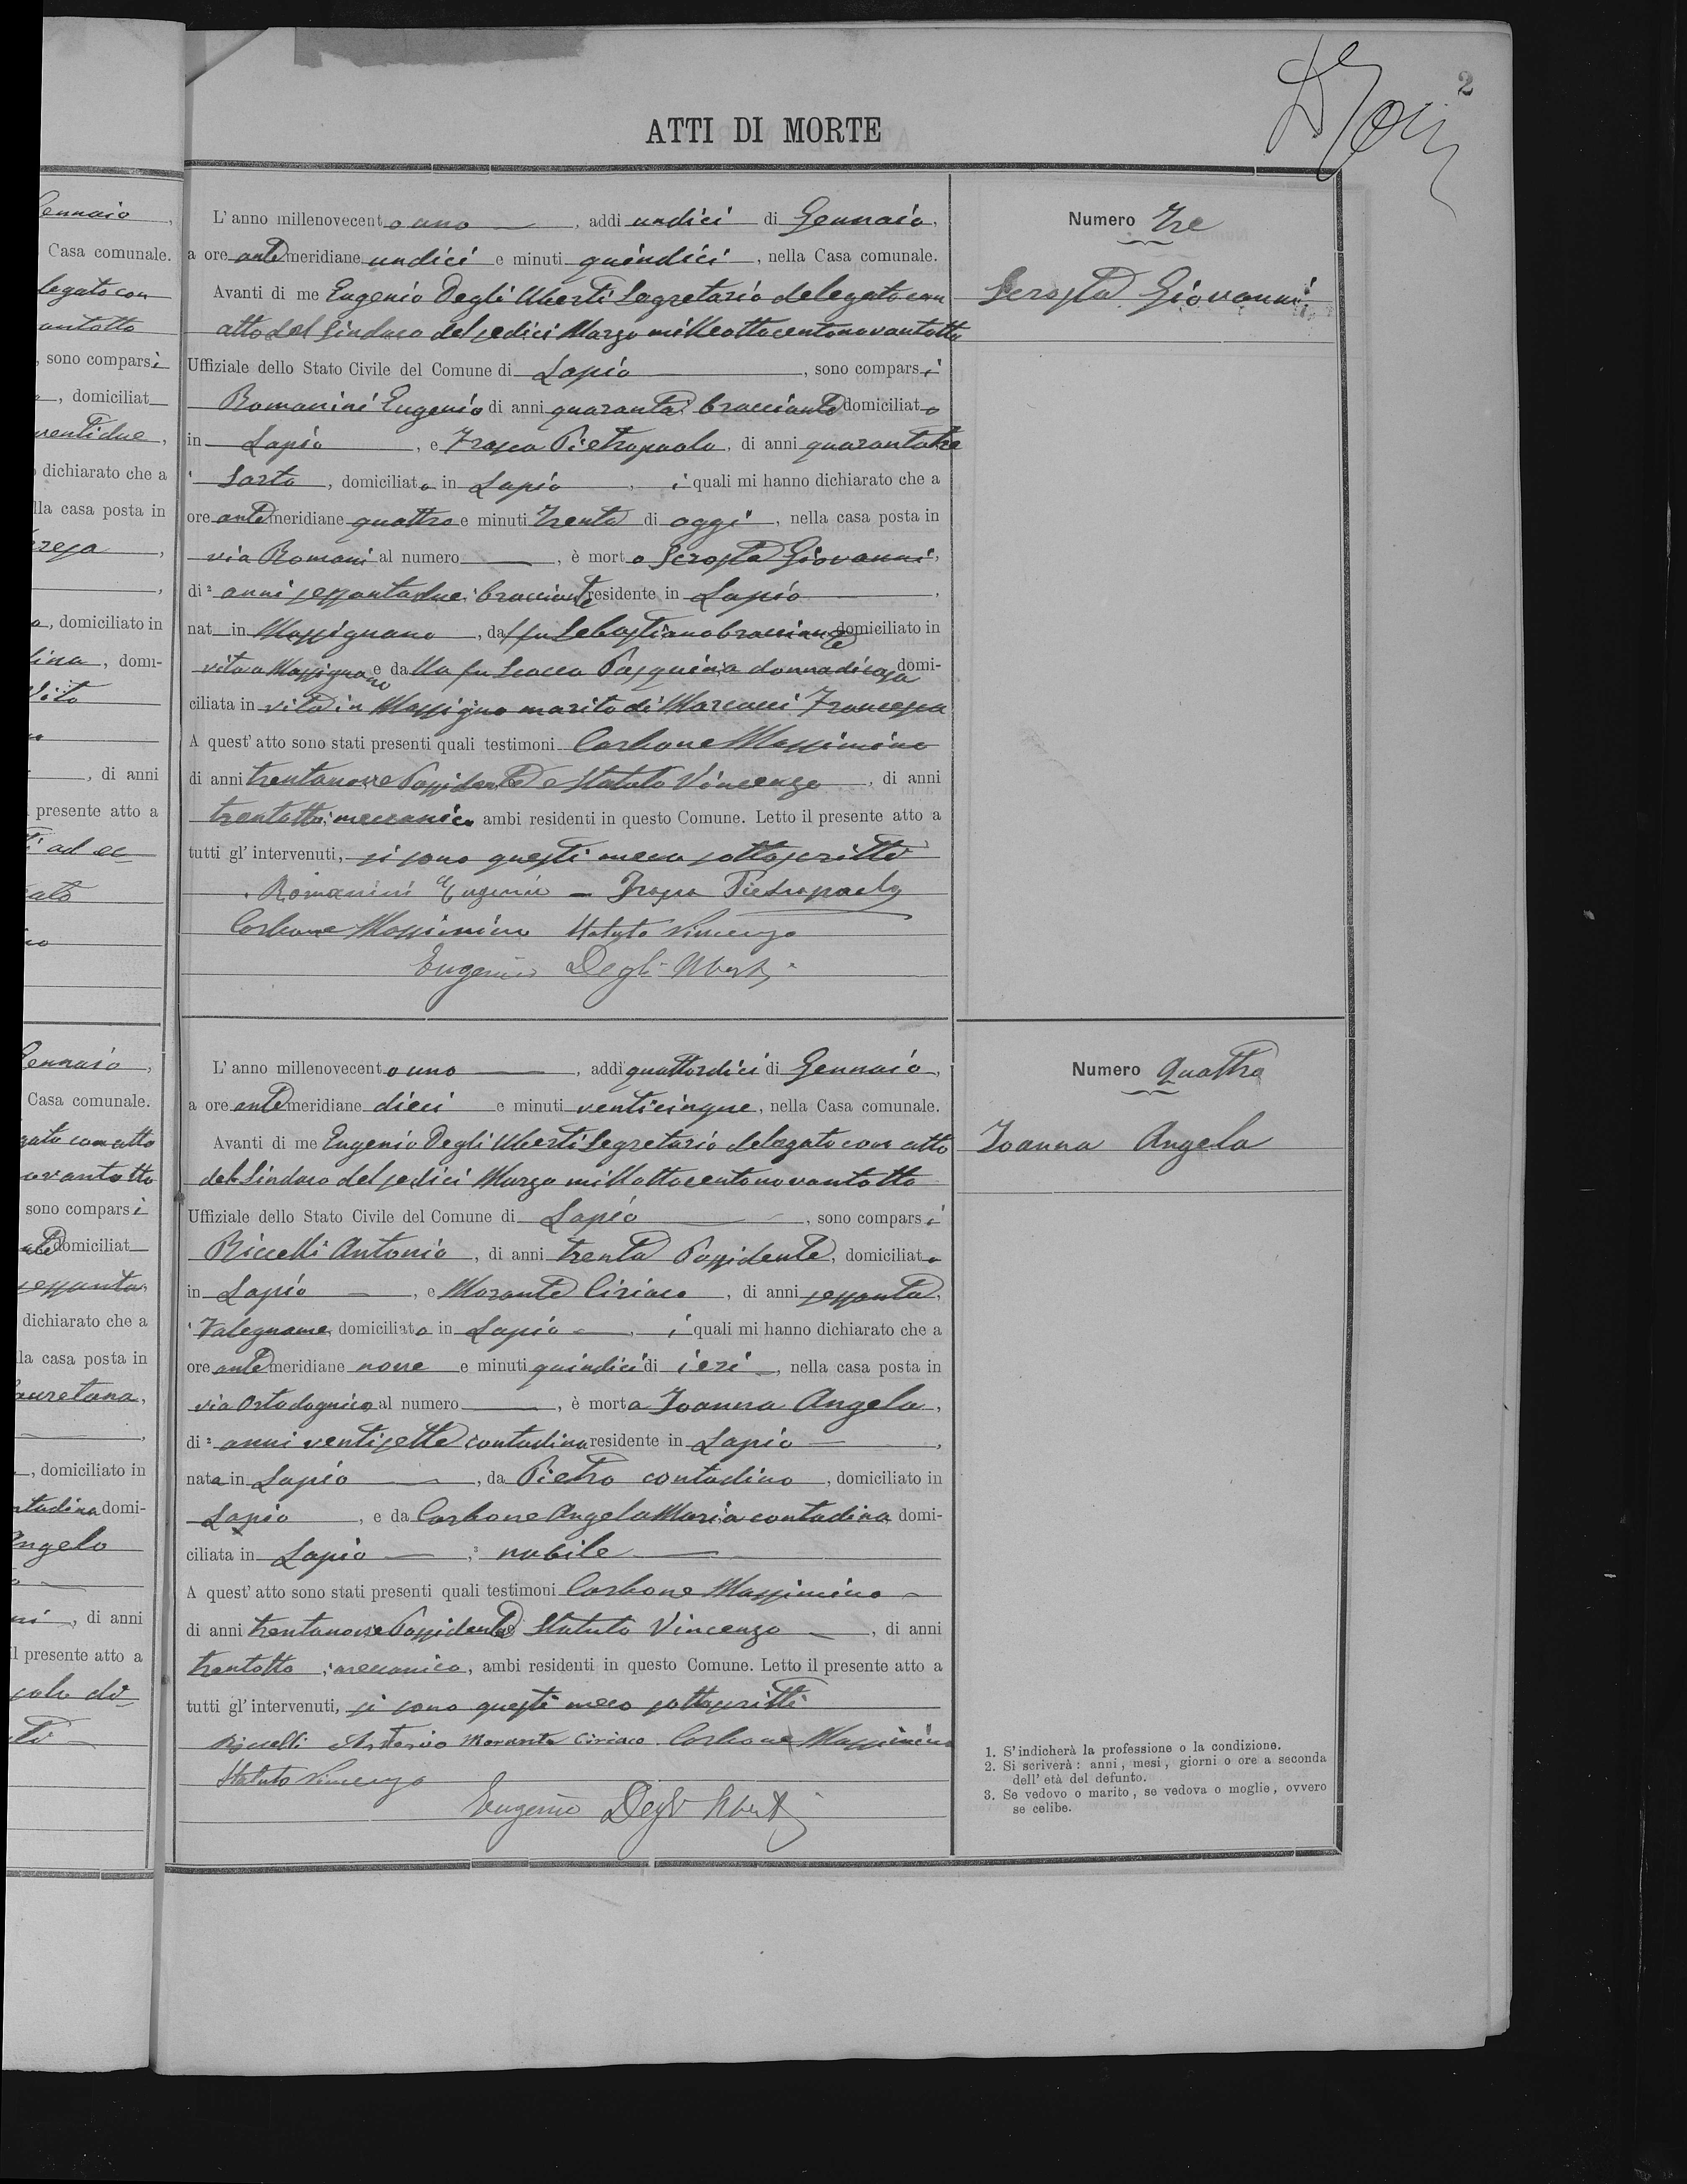 2
ATTI DI MORTE
Gennaio,
Casa comunale.
legato con
antotto
, sono comparsi
, domiciliat
ventidue,
dichiarato che a
lla casa posta in
,
a, domiciliato in
lina, domi-
Vito
, di anni
presente atto a
ad
L'anno millenovecento uno, addi undici di Gennaio,
a ore antemeridiane undici e minuti quindici, nella Casa comunale.
Avanti di me Eugenio Degli Uberti Segretario delegato con
atto del Sindaco del sedici Marzo milleottocentonovantotto
Uffiziale dello Stato Civile del Comune di Lapio, sono comparsi
Romanini Eugenio di anni quaranta bracciante domiciliato
in Lapio, e Pietropaolo, di anni quarantatre
Sarto, domiciliato in Lapio, i quali mi hanno dichiarato che a
ore antemeridiane quattro e minuti trenta di oggi, nella casa posta in
via Romani al numero, è morto Serosta Giovanni,
di² anni sessantadue bracciante residente in Lapio,
nat in Massignano, dal fu Sebastiano bracciante domiciliato in
vita a Massignano e dalla fu Pasquina donna di casa domi-
ciliata in vita in Massigno marito di Marcucci Francesca
A quest'atto sono stati presenti quali testimoni Carbone Massimino
di anni trentanove Possidente e Statuto Vincenzo, di anni
trentotto, meccanico ambi residenti in questo Comune. Letto il presente atto a
tutti gl'intervenuti, si sono questi meco sottoscritti
Romanini Eugenio - Pietropaolo
Carbone Massimino Statuto Vincenzo
Eugenio Degli Uberti
Numero Tre
Serosta Giovanni
Gennaio,
Casa comunale.
gato con atto
ovantotto
sono comparsi
domiciliat
sessanta,
dichiarato che a
la casa posta in
auretana,
, domiciliato in
ntadina domi-
Angelo
, di anni
il presente atto a
L'anno millenovecento uno, addì quattordici di Gennaio,
a ore antemeridiane dieci e minuti venticinque, nella Casa comunale.
Avanti di me Eugenio Degli Uberti Segretario delegato con atto
del Sindaco del sedici Marzo millottocentonovantotto
Uffiziale dello Stato Civile del Comune di Lapio, sono comparsi
Riccelli Antonio, di anni trenta Possidente, domiciliato
in Lapio, e Morante Ciriaco, di anni sessanta,
Falegname, domiciliato in Lapio, i quali mi hanno dichiarato che a
ore antemeridiane nove e minuti quindici di ieri, nella casa posta in
via al numero, è morta Ioanna Angela,
di² anni ventisette contadina residente in Lapio,
nata in Lapio, da Pietro contadino, domiciliato in
Lapio, e da Carbone Angela Maria contadina domi-
ciliata in Lapio,³ nubile
A quest'atto sono stati presenti quali testimoni Carbone Massimino
di anni trentanove Possidente Statuto Vincenzo, di anni
trentotto, meccanico, ambi residenti in questo Comune. Letto il presente atto a
tutti gl'intervenuti, si sono questi meco sottoscritti
Riccelli Antonio Morante Ciriaco Carbone Massimino
Statuto Vincenzo
Eugenio Degli Uberti
Numero Quattro
Ioanna Angela
1. S'indicherà la professione o la condizione.
2. Si scriverà: anni, mesi, giorni o ore a seconda
dell'età del defunto.
3. Se vedovo o marito, se vedova o moglie, ovvero
se celibe.